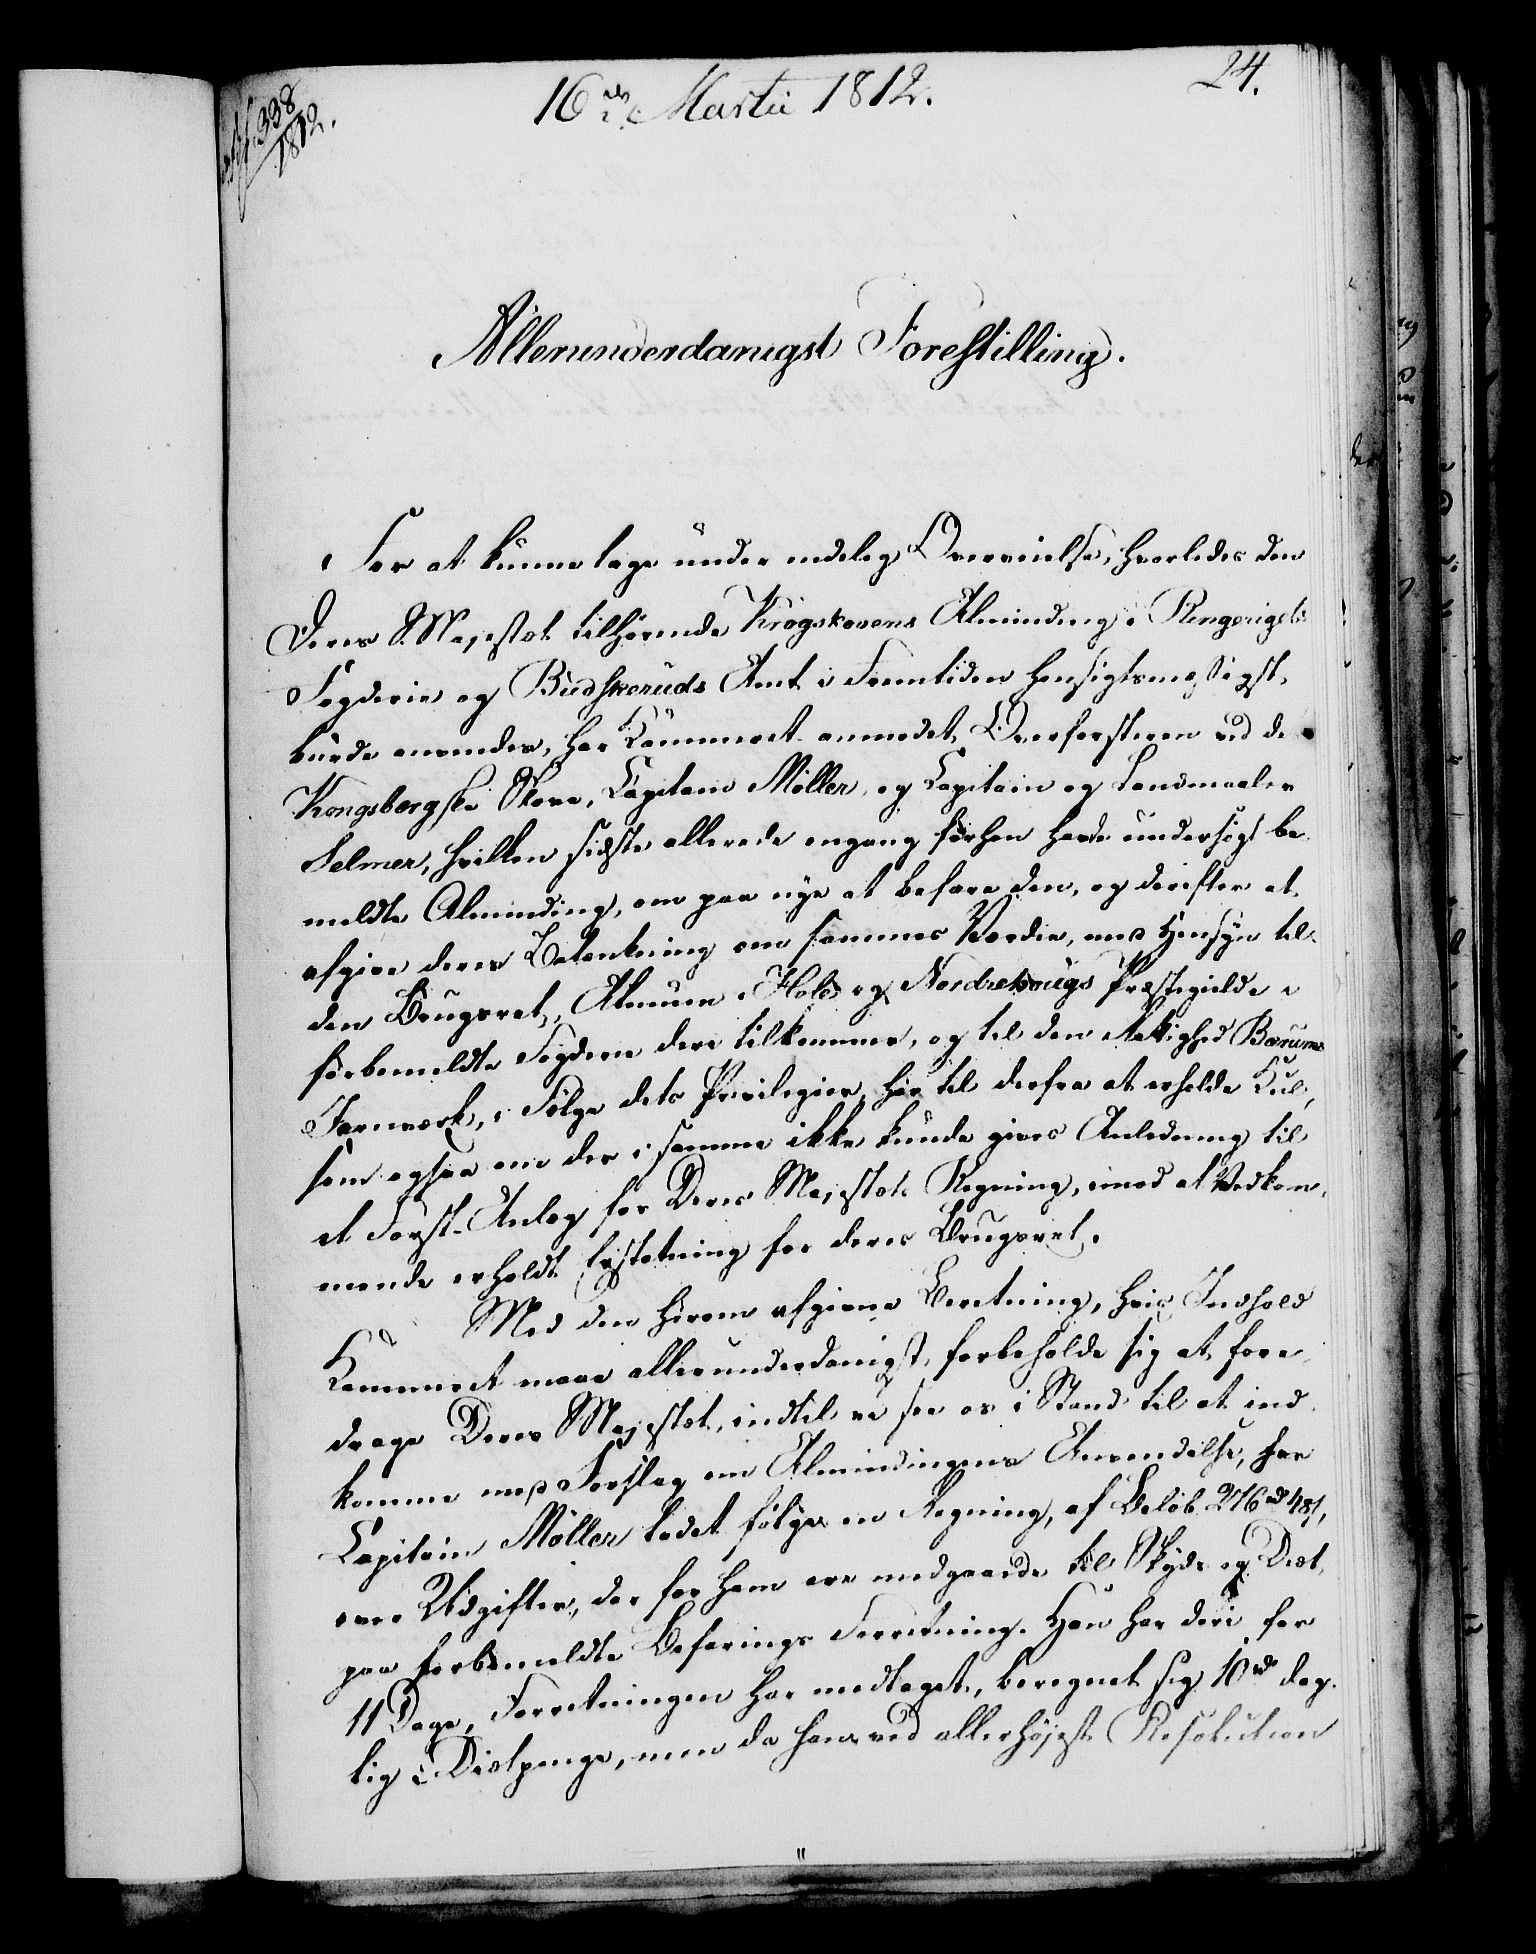 16de Martii 1812.
24.
338/1812.
Allerunderdanigst Forestilling.
For at kunne tage under endelig Overveielse, hvorledes den
Deres Majestæt tilhørende Krogskovens Alminding i Ringeriges
Fogderie og Budskeruds Amt i Fremtiden hensigtsmæssigst
burde anvendes, har Kammeret anmodet Overførsteren ved de
Kongsbergske Skove, Capitain Møller, og Capitain og Landmaaler
Selmer, hvilken sidste allerede engang førhen havde undersøgt be-
meldte Alminding, om paa nye at befare den, og derefter at
afgive deres Betænkning om sammes Værdie, med Hensyn til
den Brugsret, Almuen i Hole og Nordrehougs Præstegielde i
forbemeldte Fogderie deri tilkommer, og til den Rettighed Bærums
Jernværk, i Følge dets Privilegier, har til derfra at erholde Kul,
som ogsaa om der i samme ikke kunde gives Anledning til
et Forst-Anlæg for Deres Majestæts Regning, imod at Vedkom-
mende erholdt Erstatning for deres Brugsret.
Med den herom afgivne Beretning, hvis Indhold
Kammeret maae allerunderdanigst forbeholde sig at fore-
drage Deres Majestæt, indtil vi see os i Stand til at ind-
komme med Forslag om Almindingens Anvendelse, har
Capitain Møller ladet følge en Regning, af Beløb 276 rd 48 s,
over Udgifter, der for ham ere medgaaede til Skyds og Diæt
paa forbemeldte Befarings Forretning. Han har deri for
11 Dage, Forretningen har medtaget, beregnet sig 10 rd dag-
lig i Diætpenge, men da han ved allerhøjeste Resolution